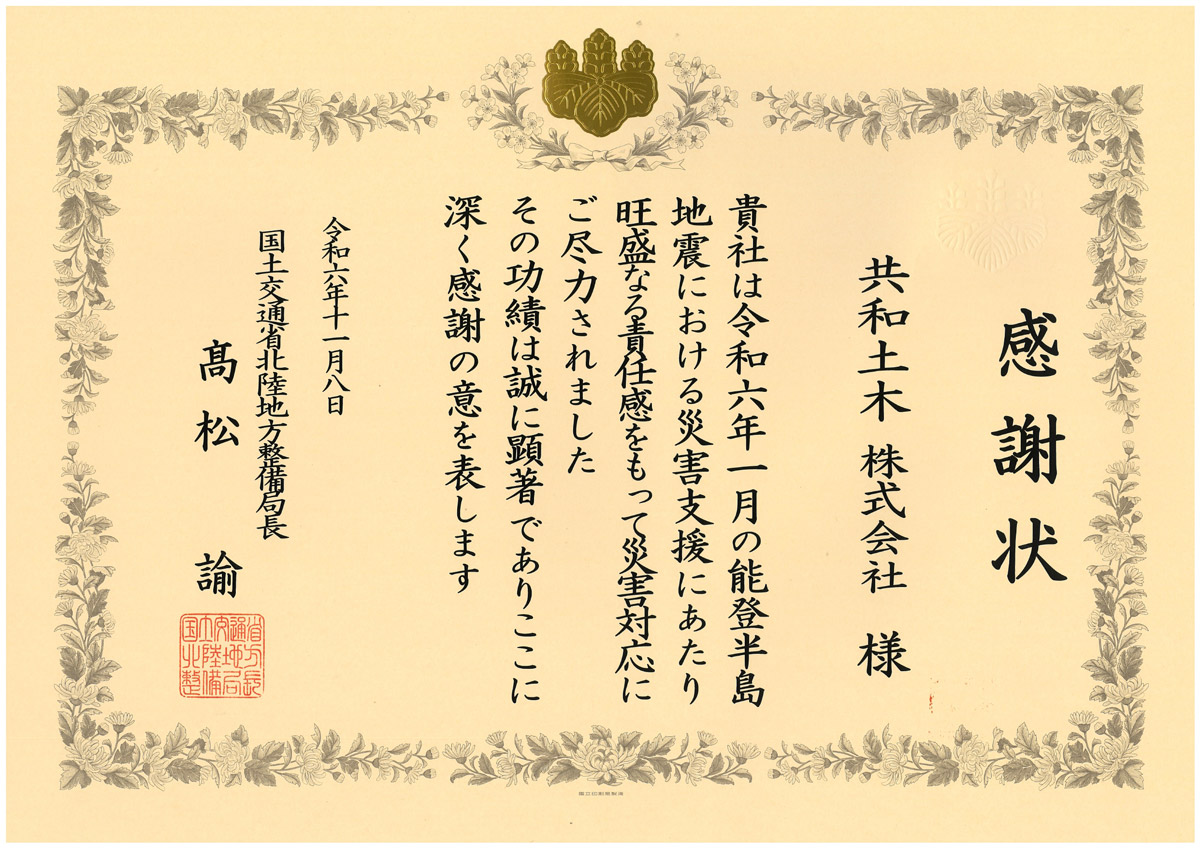 感謝状
共和土木 株式会社 様
貴社は令和六年一月の能登半島
地震における災害支援にあたり
旺盛なる責任感をもって災害対応に
ご尽力されました
その功績は誠に顕著でありここに
深く感謝の意を表します
令和六年十一月八日
国土交通省北陸地方整備局長
髙松 諭